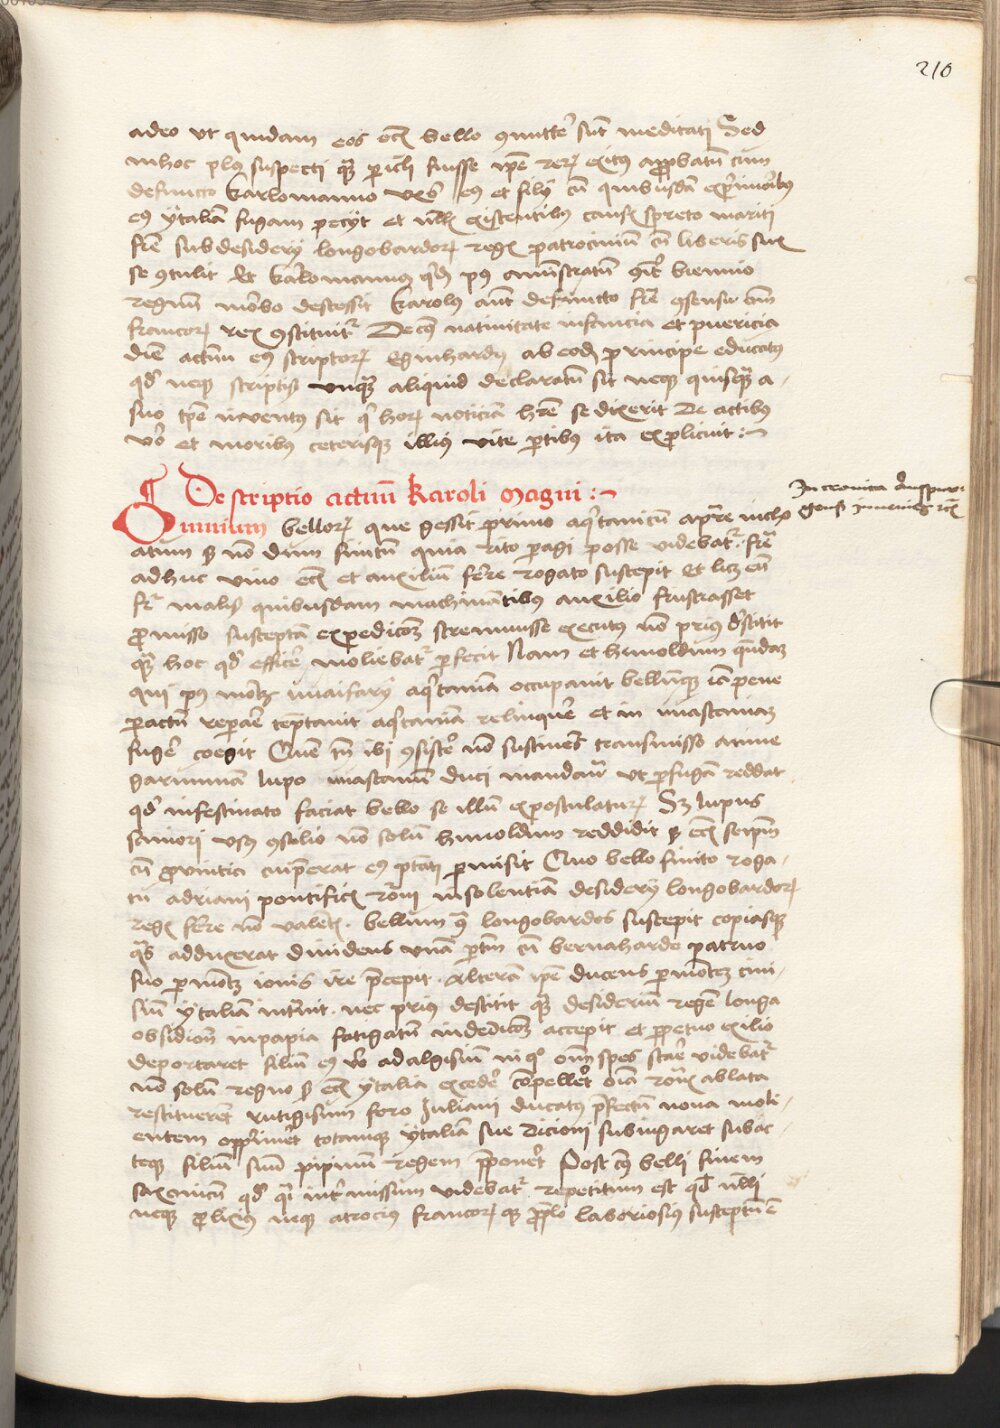 210
adeo vt quidam eos etiam bello committere sunt meditati Sed
in hoc plus suspecti quam periculi fuisse ipse rerum exitus approbatum cum
defuncto karlomanno vxor eius et filij cum quibusdam exprimoribus
eius ytaliam fugam pecijt et nullis existentibus causis spreto mariti
fratre sub desiderij longobardorum regis patrocinium cum liberis suis
se contulit Et karlomannus quidem post amministratum communiter biennio
regnum morbo decessit karolus autem defuncto fratre consensu omnium
francorum rex constituitur De cuius natiuitate infancia et puericia
dicit actuum eius scriptorum Eginhardus ab eodem principe educatus
quod neque scriptis vnquam aliquid declaratum sit neque quisquam a-
suo tempore inuentus sit qui horum noticiam habere se dixerit De actibus
vero et moribus ceterisque illius vite partibus ita explicuit :~
¶ Descriptio actuum karoli magni :~
In cronica
Omnium bellorum que gessit primo aquitanicum a patre incho
atum sed non dum finitum quia cito peragi posse videbatur. fratre
adhuc viuo etiam et auxilium ferre rogato suscepit Et licet eum
frater malis quibusdam machinantibus auxilio frustrasset
promisso susceptam expedicionem strennuisse executus non prius destitit
quam hoc quod efficere moliebatur perfecit Nam et hunoldum quendam
qui post mortem waifarij aquitaniam occupauit bellumque iam pene
peractum reparare temptauit aquitaniam relinquere et in wasconiam
fugere coegit Quem tamen ibi consistere non sustinens transmisso amne
garumnam lupo wasconum duci mandauit vt perfugam reddat
quod in festinato faciat bello se illum expostulaturum Sed lupus
saniori vsus consilio non solum hunoldum reddidit sed etiam se ipsum
cum prouintia cui preerat eius potestati permisit Quo bello finito roga-
tu adriani pontificis romani insolentiam desiderij longobardorum
regis ferre non valentis. bellum contra longobardos suscepit copiasque
quas adduxerat diuidens vnam partem cum bernaharde patruo
suo per montem iouis ire precepit. Alteram ipse ducens per montem cini-
sium ytaliam intrauit. nec prius destitit quam desiderium regem longa
obsidione in papia fatigatum in dedicionem accepit et perpetuo exilio
deportaret filium eius vero adalgisium in quo omnium spes stare videbatur
non solum regno sed etiam ytalia excedere compelleret omnia romanis ablata
restitueret rutigisum foro Juliani ducatus prefectum noua moli-
entem opprimeret totamque ytaliam sue dicioni subiugaret subac-
teque filium suum pipinum regem preponeret Post cuius belli finem
saxonicum quod quasi intermissum videbatur. repetitum est quod nulli
neque prolixius neque atrocius francorum que populo laboriosius susceptum est